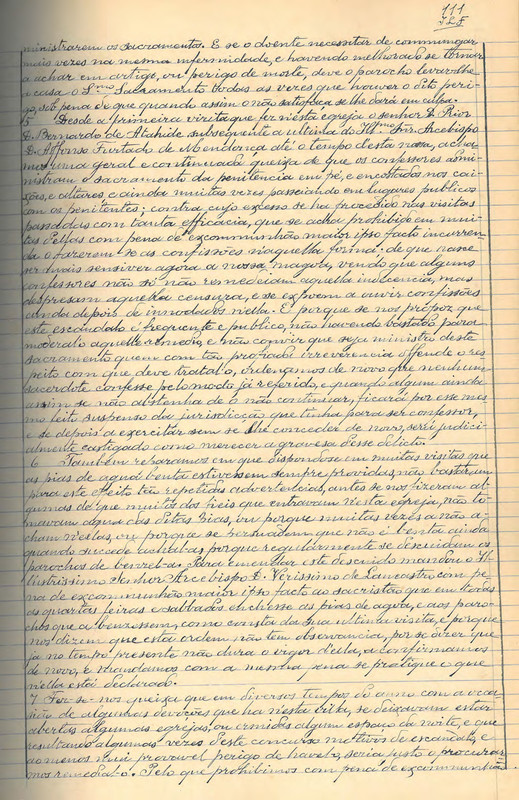 111
ministrarem os sacramentos. E se o doente necessitar de commungar
mais vezes na mesma infermidade, e havendo melhorado se tornar
a achar em artigo, ou perigo de morte, deve o parocho levar-lhe
a casa o S.mo Sacramento todas as vezes que houver o dito peri-
go, sob pena de que quando assim o não satisfaça se lhe dará em culpa.
5 Desde a primeira visita que fez n'esta egreja o senhor D. Prior
D. Bernardo de Atahide subsequente a ultima do Ill.mo Snr. Arcebispo
D. Affonso Furtado de Mendonça até o tempo desta nossa, acha-
mos uma geral e continuada queixa de que os confessores admi-
nistram o sacramento da penitencia em pé, e encostados nos cai-
xões, e altares e ainda muitas vezes passeiando em lugares publicos
com os penitentes; contra cujo excesso se ha procedido nas visitas
passadas com tanta efficacia, que se acha prohibido em mui-
tas d'ellas com pena de excommunhão maior ipso facto incurren-
da o fazerem-se as confissões n'aquella forma; de que nasce
ser mais sensivel agora a nossa magoa, vendo que alguns
confessores não só não remedeiam aquella indecencia, mas
despresam aquella censura, e se expoem a ouvir confissões
ainda depois de innodados n'ella. E porque se nos propoz que
este escandalo é frequente e publico, não havendo bastado para
moderal-o aquelle remedio, e não convir que seja ministro deste
sacramento quem com tão profiada irreverencia offende o res-
peito com que deve tratal-o, ordenamos de novo que nenhum
sacerdote confesse pelo modo já referido, e quando algum ainda
assim se não abstenha de o não continuar, ficará por esse mes-
mo feito suspenso da jurisdicção que tinha para ser confessor,
e se depois a exercitar sem se lhe conceder de novo, será judici-
almente castigado como merecer a graveza d'esse delicto.
6 Tambem reparamos em que dispondo-se em muitas visitas que
as pias de agua benta estivessem sempre providas não bastaram
para este effeito tão repetidas advertencias, antes se nos fizeram al-
gumas de que muitos dos fieis que entravam n'esta egreja, não to-
mavam agua das ditas pias, ou porque muitas vezes a não a-
cham n'estas, ou porque se persuadem que não é benta ainda
quando succede achal-as porque regularmente se descuidam os
parochos de benzel-as. Para emendar este descuido mandou o Il-
lustrissimo Senhor Arcebispo D. Verissimo de Lancastro com pe-
na de excommunhão maior ipso facto ao sacristão que em todas
as quartas feiras e sabbados enchesse as pias de agoa, e aos paro-
chos que a benzessem, como consta da sua ultima visita, e porque
nos dizem que esta ordem não tem observancia, por se dizer que
já no tempo presente não dura o vigor d'ella, a confirmamos
de novo, e mandamos com a mesma pena se pratique o que
n'ella está declarado.
7 Fez-se-nos queixa que em diversos tempos do anno com a occa-
sião de algumas devoções que ha n'esta villa, se deixavam estar
abertas algumas egrejas, ou ermidas algum espaço da noite, e que
resultando algumas vezes d'este concurso motivos de escandalo, e
ao menos mui provavel perigo de havel-o, seria justo o procurar-
mos remedial-o. Pelo que prohibimos com pena de excommunhão